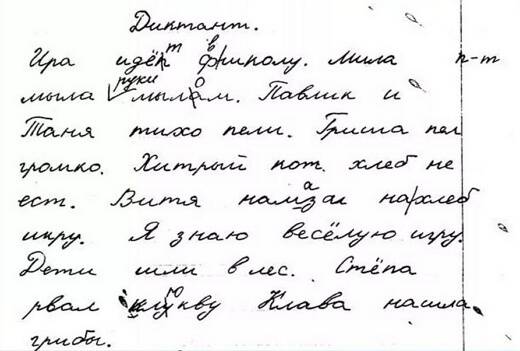 Диктант.
Ира идёт в школу. Мила п-т
мыла руки мылом. Павлик и
Таня тихо пели. Гриша пел
громко. Хитрый кот. хлеб не
ест. Витя намазал на хлеб
икру. Я знаю весёлую игру.
Дети шли в лес. Стёпа
рвал клюкву Клава нашла
грибы.